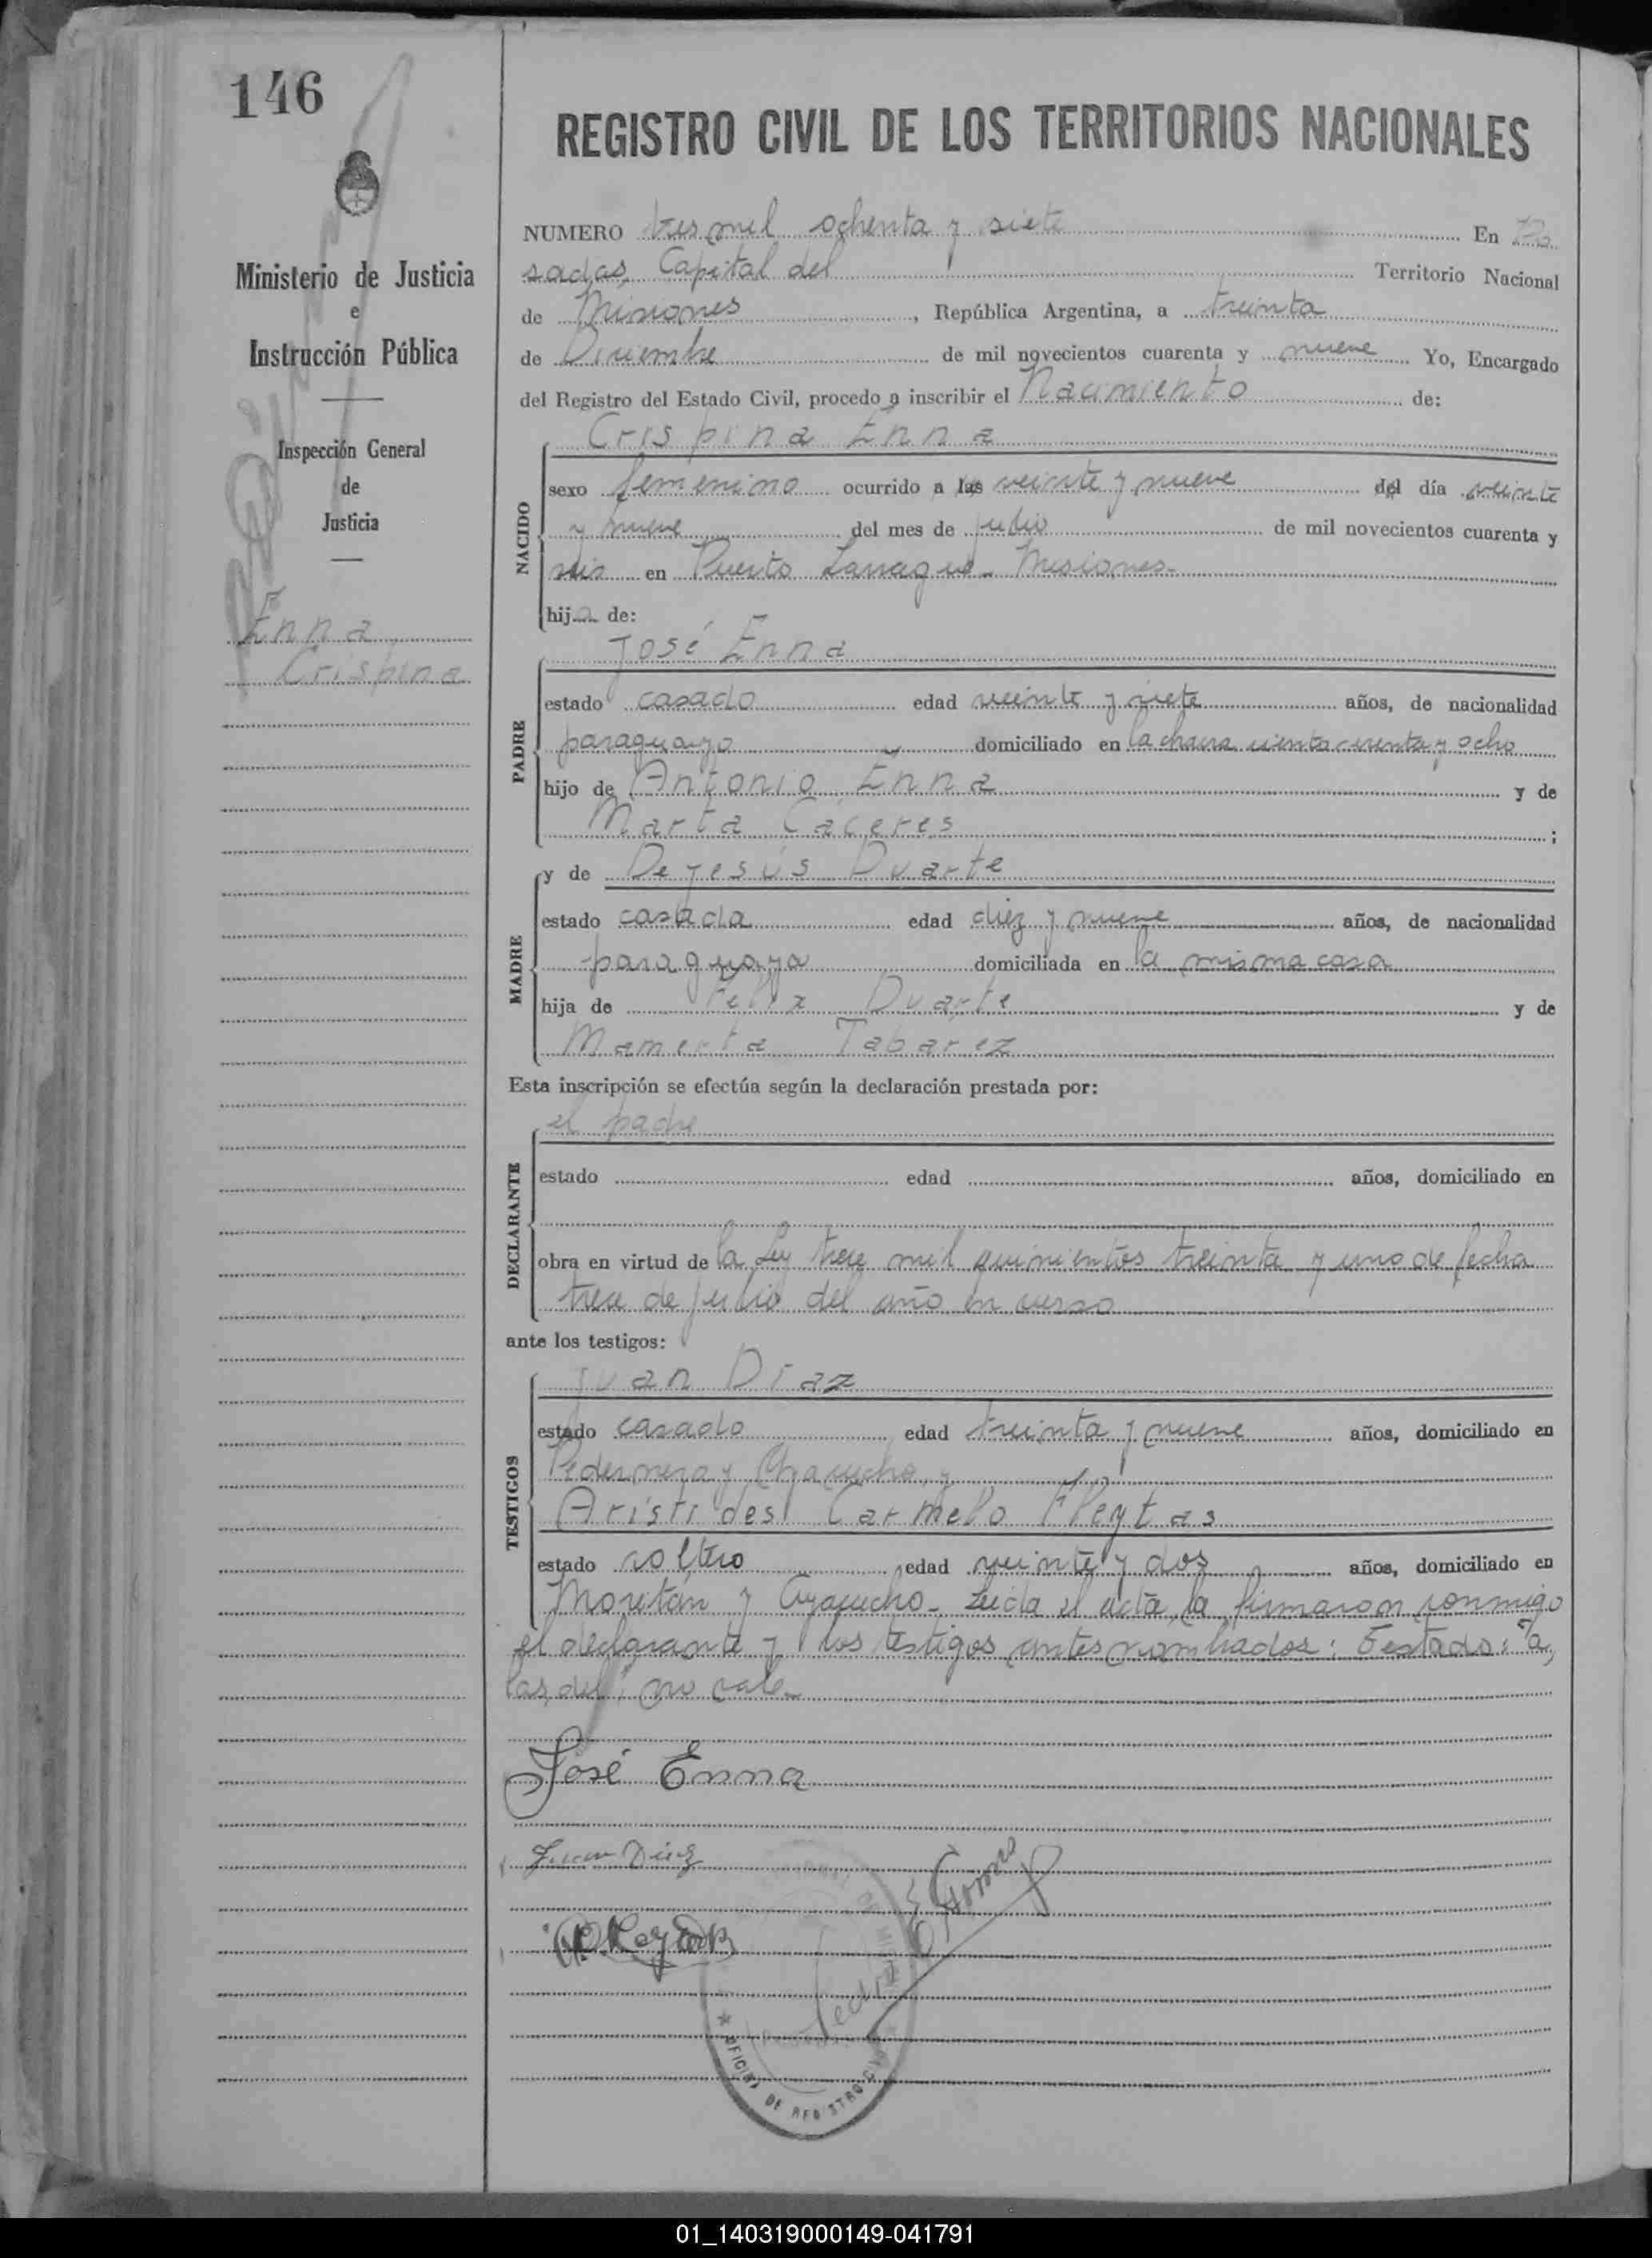 146
REGISTRO CIVIL DE LOS TERRITORIOS NACIONALES
Ministerio de Justicia
e
Instrucción Pública
Inspección General
de
Justicia
Enna
Crispina
NUMERO tres mil ochenta y siete En Po
sadas Capital del Territorio Nacional
de Misiones, República Argentina, a treinta
de Diciembre de mil novecientos cuarenta y nueve Yo, Encargado
del Registro del Estado Civil, procedo a inscribir el Nacimiento de:
Crispina Enna
NACIDO
sexo femenino ocurrido a las veinte y nueve del día veinte
y nueve del mes de julio de mil novecientos cuarenta y
seis en Puerto Misiones-
hija de:
José Enna
PADRE
estado casado edad veinte y siete años, de nacionalidad
paraguayo domiciliado en la chacra ciento y ocho
hijo de Antonio Enna y de
Marta Cáceres ;
y de De Jesús Duarte
MADRE
estado casada edad diez y nueve años, de nacionalidad
paraguaya domiciliada en la misma casa
hija de Felix Duarte y de
Mamerta Tabarez
Esta inscripción se efectúa según la declaración prestada por:
el padre
DECLARANTE
estado edad años, domiciliado en
obra en virtud de la Ley trece mil quinientos treinta y uno de fecha
trece de julio del año en curso
ante los testigos:
Juan Diaz
TESTIGOS
estado casado edad treinta y nueve años, domiciliado en
Pedernera y Ayacucho, y
Aristides Carmelo Fleytas
estado soltero edad veinte y dos años, domiciliado en
Moritán y Ayacucho- Leída el acta, la firmaron conmigo
el declarante y los testigos antes nombrados: Testado: "a,
las, del", no vale-
José Enna
Juan Diaz
OFICINA DE REGISTRO CIVIL
01_140319000149-041791